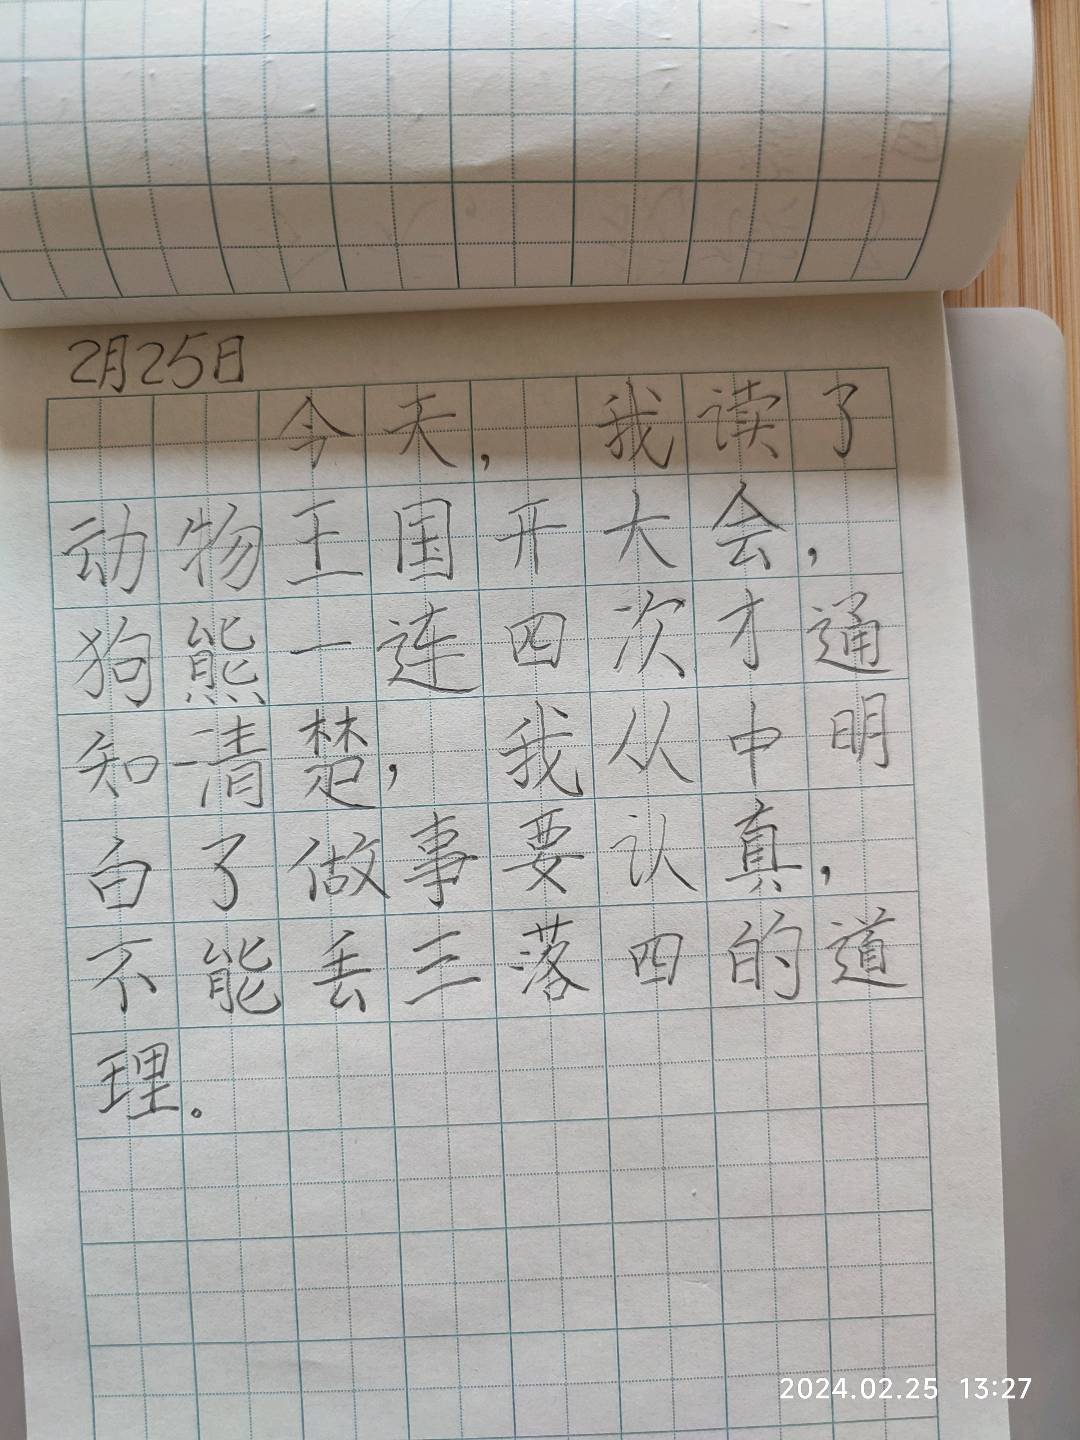 2月25日
今天，我读了
动物王国开大会，
狗熊一连四次才通
知清楚，我从中明
白了做事要认真，
不能丢三落四的道
理。
2024.02.25 13:27